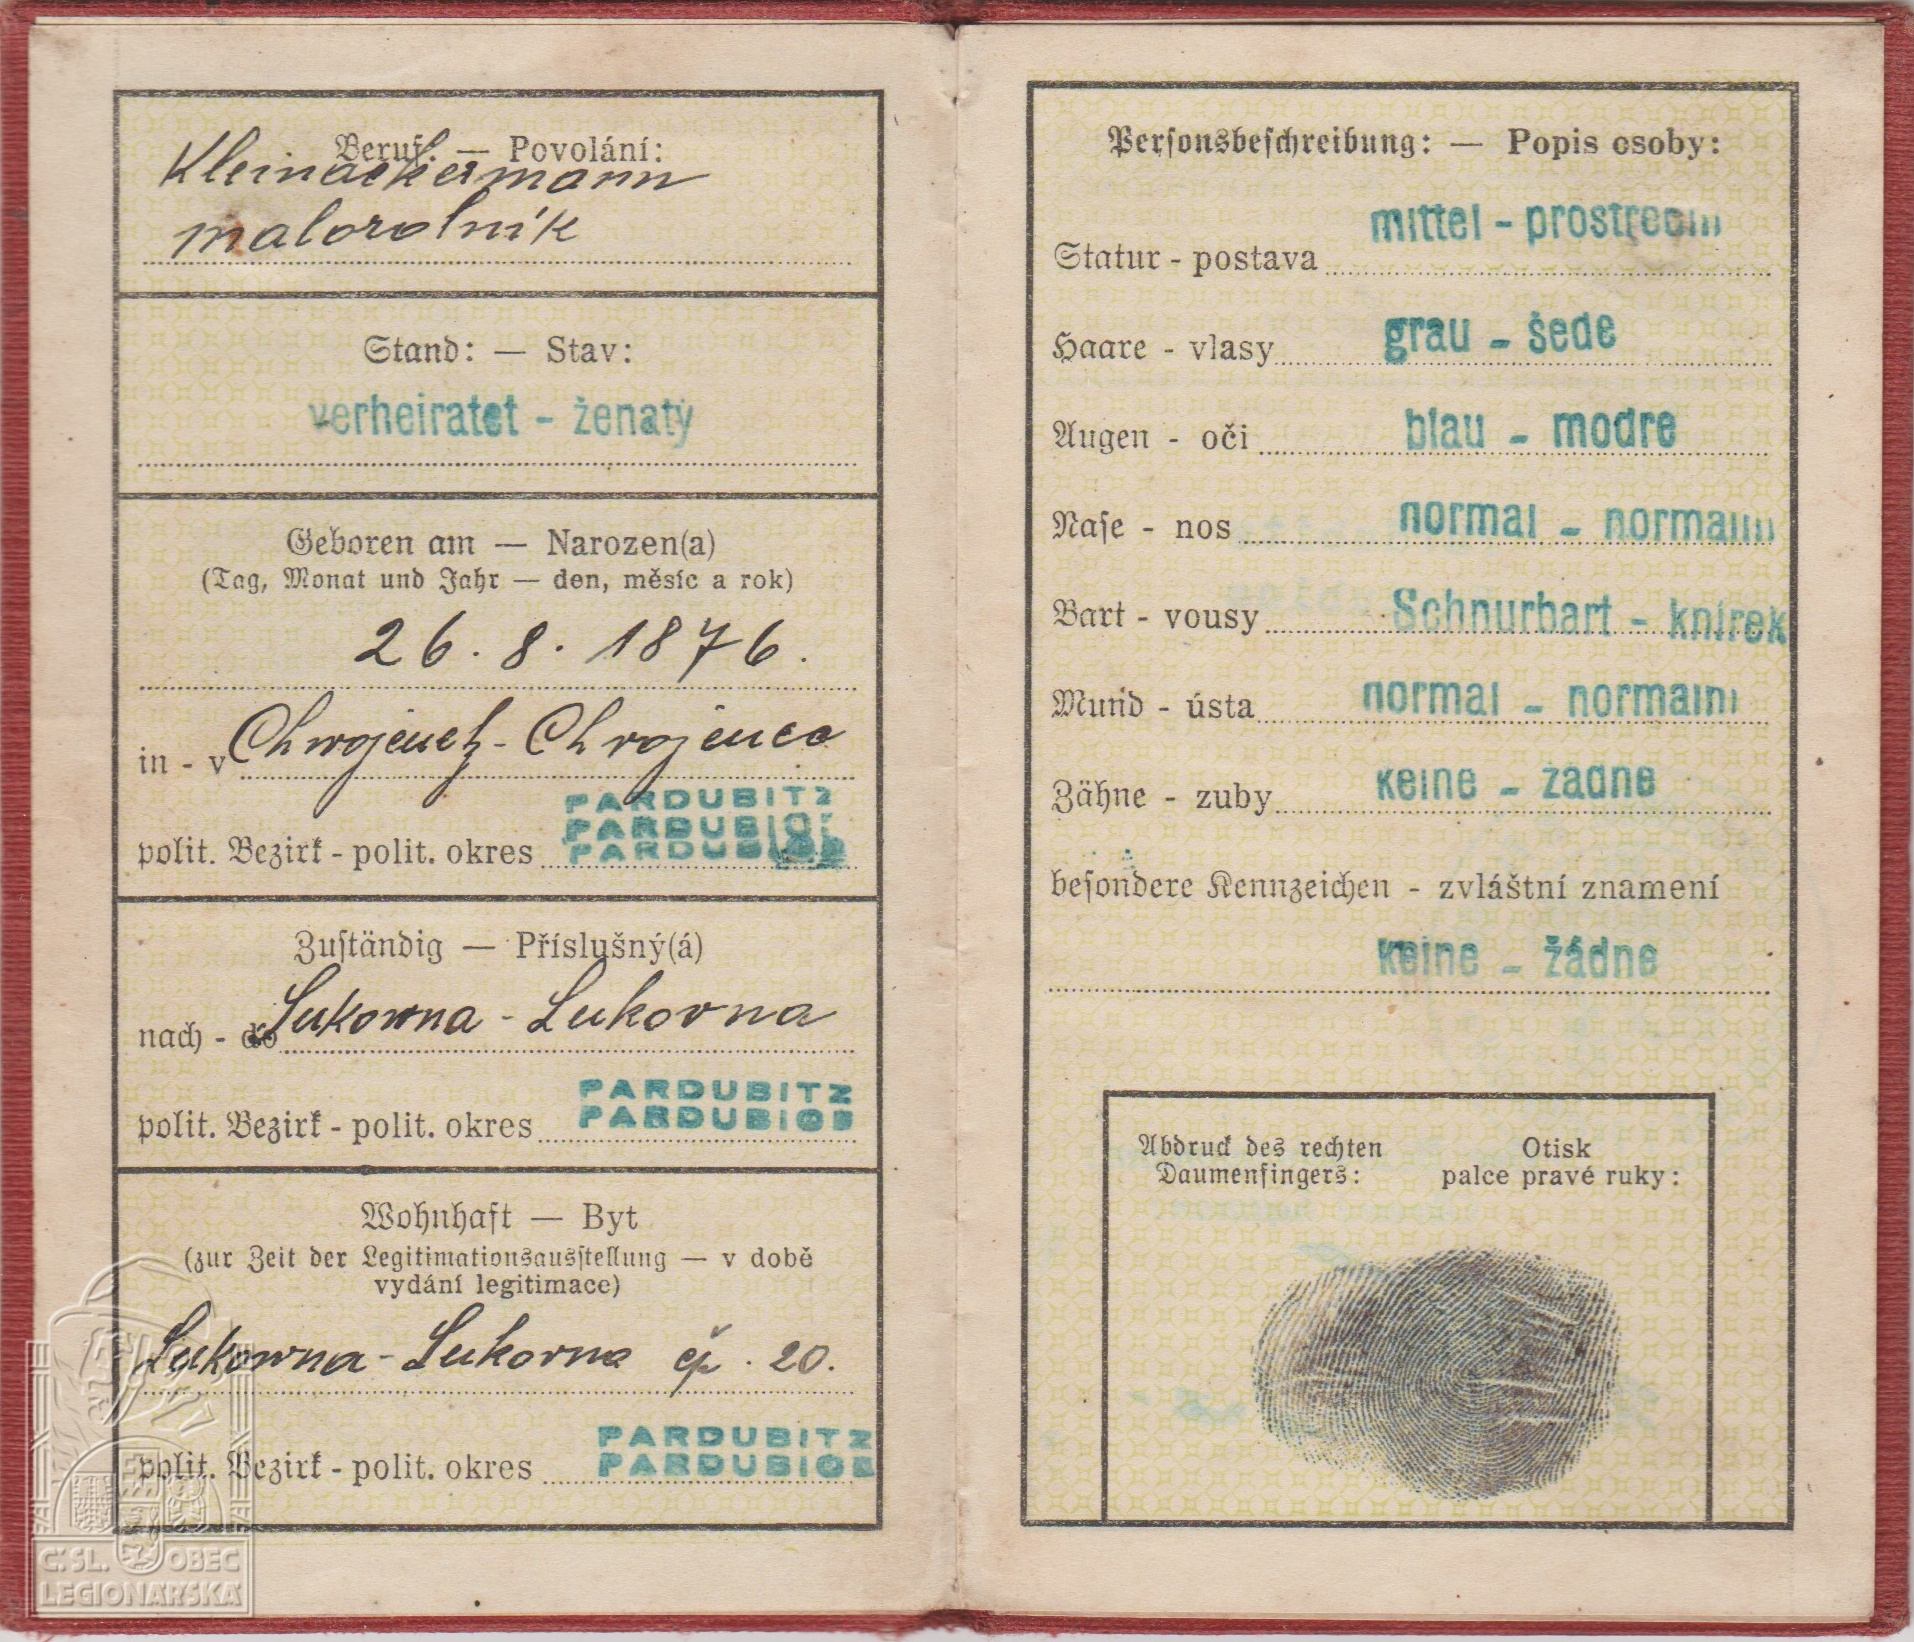 Beruf. — Povolání:
Kleinackermann
malorolník
Stand: — Stav:
verheiratet - ženatý
Geboren am — Narozen(a)
(Tag, Monat und Jahr — den, měsíc a rok)
26. 8. 1876.
in - v Chwojenetz - Chvojenec
PARDUBITZ
PARDUBICE
polit. Bezirk - polit. okres PARDUBICE
Zuständig — Příslušný(á)
nach - do Lukowna - Lukovna
PARDUBITZ
polit. Bezirk - polit. okres PARDUBICE
Wohnhaft — Byt
(zur Zeit der Legitimationsausstellung — v době
vydání legitimace)
Lukowna - Lukovna čp. 20.
PARDUBITZ
polit. Bezirk - polit. okres PARDUBICE
Č.SL. OBEC
LEGIONÁŘSKÁ
Personsbeschreibung: — Popis osoby:
Statur - postava mittel - prostřední
Haare - vlasy grau - šedé
Augen - oči blau - modré
Nase - nos normal - normální
Bart - vousy Schnurbart - knírek
Mund - ústa normal - normální
Zähne - zuby keine - žádné
besondere Kennzeichen - zvláštní znamení
keine - žádné
Abdruck des rechten Daumenfingers:
Otisk palce pravé ruky: